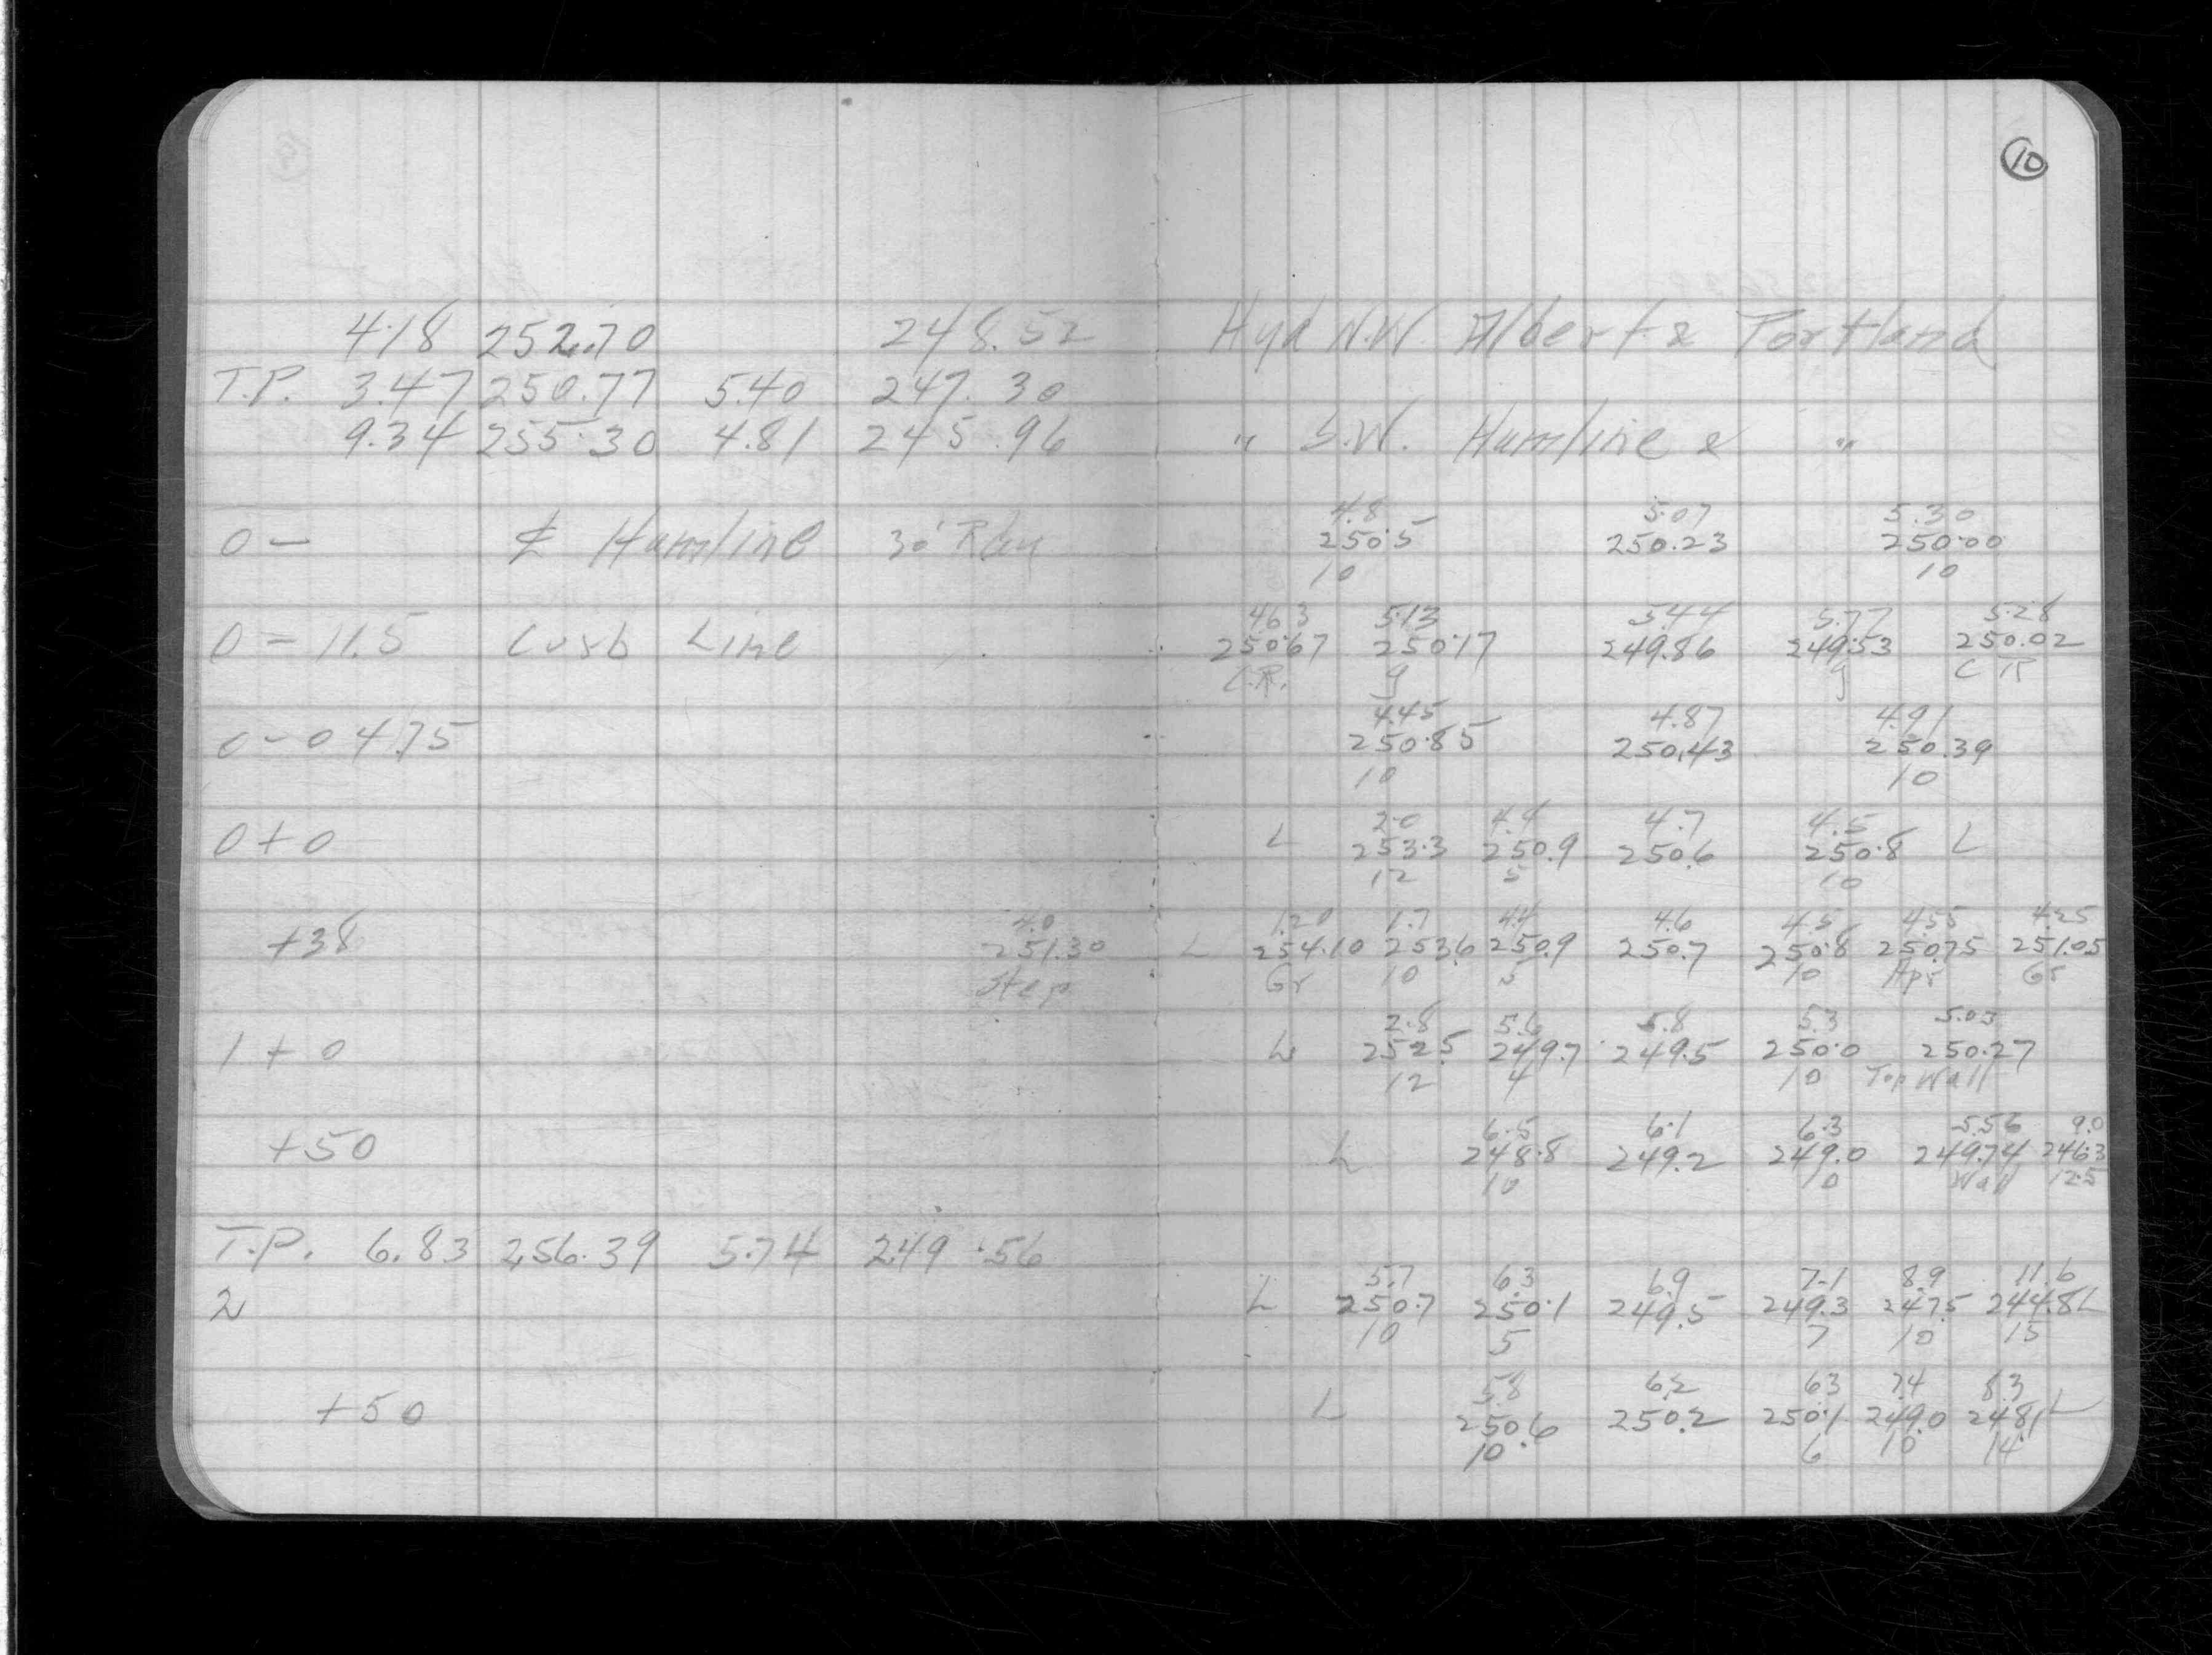 10
4.18 252.70 248.52 Hyd N.W. Albert & Portland
T.P. 3.47 250.77 5.40 247.30
9.34 255.30 4.81 245.96 " S.W. Hamline & "
4.8 5.07 5.30
0 - ℄ Hamline 30' Rdwy 250.5 250.23 250.00
10 10
4.63 5.13 5.44 5.77 5.28
0 - 11.5 Curb Line 250.67 250.17 249.86 249.53 250.02
C.R. g g C R
4.45 4.87 4.91
0 - 0 4.75 250.85 250.43 250.39
10 10
2.0 4.4 4.7 4.5
0 + 0 L 253.3 250.9 250.6 250.8 L
12 5 10
4.0 1.20 1.7 4.4 4.6 4.5 4.55 4.25
+38 251.30 L 254.10 253.6 250.9 250.7 250.8 250.75 251.05
Step Gr 10 5 10 Apr Gr
2.8 5.6 5.8 5.3 5.03
1 + 0 L 252.5 249.7 249.5 250.0 250.27
12 4 10 Top Wall
6.5 6.1 6.3 5.56 9.0
+50 L 248.8 249.2 249.0 249.74 246.3
10 10 Wall 12.5
T.P. 6.83 256.39 5.74 249.56
5.7 6.3 6.9 7.1 8.9 11.6
2 L 250.7 250.1 249.5 249.3 247.5 244.8 L
10 5 7 10 15
5.8 6.2 6.3 7.4 8.3
+50 L 250.6 250.2 250.1 249.0 248.1 L
10 6 10 14